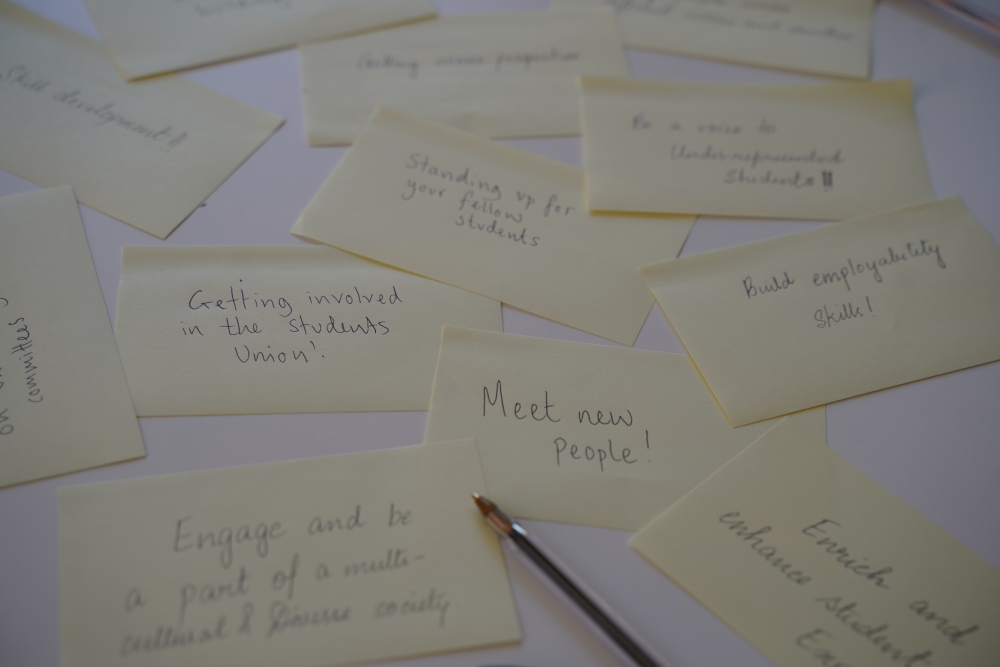 Skill development!!
Be a voice to
Under-represented
Students!!!
Standing up for
your fellow
students
Build employability
Skills!
Getting involved
in the students
Union!
committees
Meet new
people!
Engage and be
a part of a multi-
cultural & Diverse society
Enrich and
enhance student